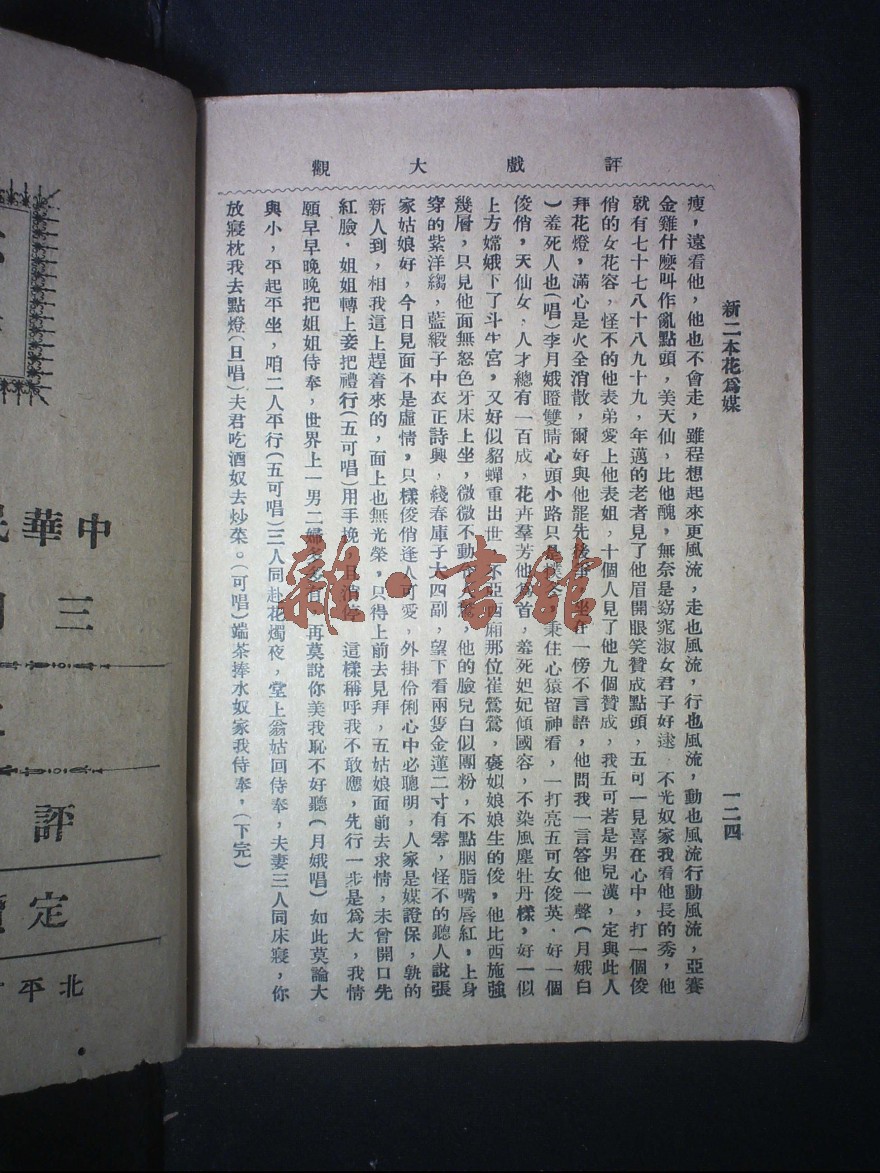 評戲大觀
新二本花爲媒
一二四
瘦，遠看他，他也不會走，雖程想起來更風流，走也風流，行也風流，動也風流行動風流，亞賽
金雞什麽叫作亂點頭，美天仙，比他醜，無奈是窈窕淑女君子好逑 不光奴家我看他長的秀，他
就有七十七八十八九十九，年邁的老者見了他眉開眼笑贊成點頭，五可一見喜在心中，打一個俊
俏的女花容，怪不的他表弟愛上他表姐，十個人見了他九個贊成，我五可若是男兒漢，定與此人
拜花燈，滿心是火全消散，爾好與他罷先 坐在一傍不言語，他問我一言答他一聲（月娥白
）羞死人也（唱）李月娥瞪雙睛心頭小路只是 秉住心猿留神看，一打亮五可女俊英．好一個
俊俏，天仙女．人才總有一百成，花卉羣芳他爲首，羞死妲妃傾國容，不染風塵牡丹樣，好一似
上方嫦娥下了斗牛宮，又好似貂蟬重出世 不亞西廂那位崔鶯鶯，褒姒娘娘生的俊，他比西施強
幾層，只見他面無怒色牙床上坐，微微不動 他的臉兒白似團粉，不點胭脂嘴唇紅，上身
穿的紫洋縐，藍緞子中衣正詩興，綫春庫子大四副，望下看兩隻金蓮二寸有零，怪不的聽人說張
家姑娘好，今日見面不是虛情，只樣俊俏逢人可愛，外掛伶俐心中必聰明，人家是媒證保，執的
新人到，相我這上趕着來的，面上也無光榮，只得上前去見拜，五姑娘面前去求情，未曾開口先
紅臉、姐姐轉上妾把禮行（五可唱）用手挽，且消停 這樣稱呼我不敢應，先行一步是爲大，我情
願早早晚晚把姐姐侍奉，世界上一男二婦多多有 再莫說你美我恥不好聽（月娥唱）如此莫論大
與小，平起平坐，咱二人平行（五可唱）三人同赴花燭夜，堂上翁姑回侍奉，夫妻三人同床寢，你
放寢枕我去點燈（旦唱）夫君吃酒奴去炒菜。（可唱）端茶捧水奴家我侍奉，（下完）
雜·書館
中華
三
評
定
北平